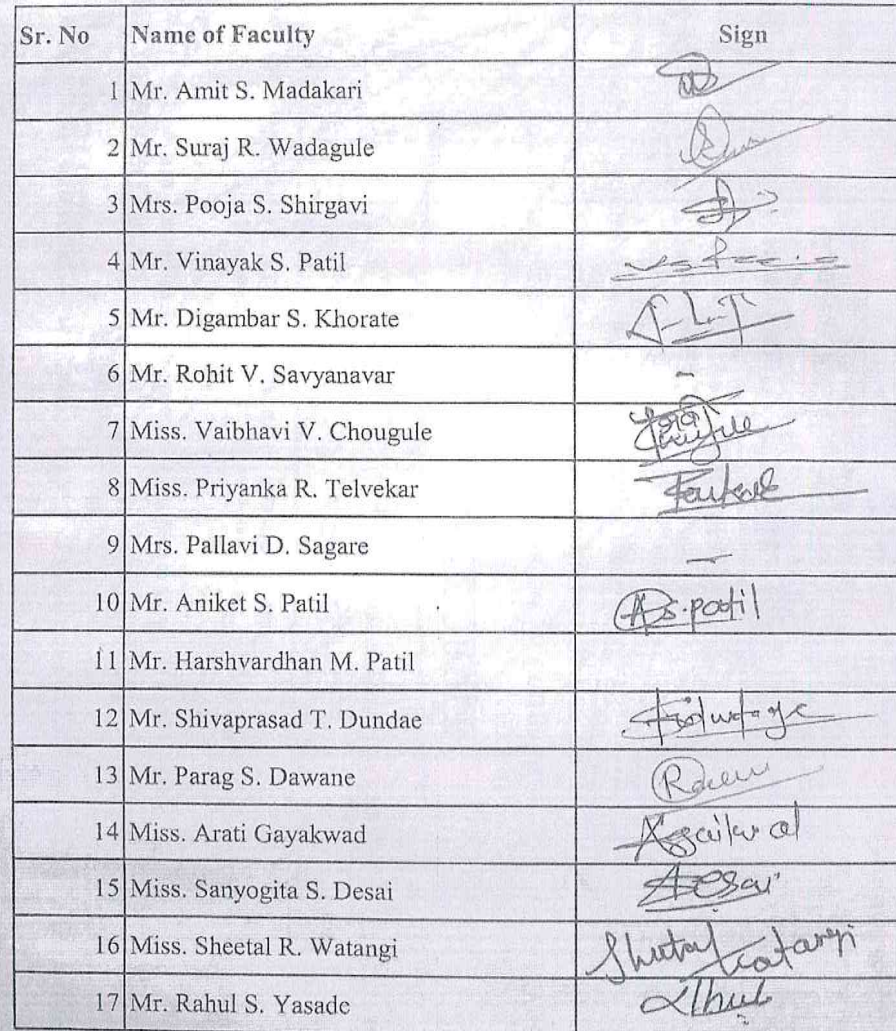 Sr. No Name of Faculty Sign
1 Mr. Amit S. Madakari
2 Mr. Suraj R. Wadagule
3 Mrs. Pooja S. Shirgavi
4 Mr. Vinayak S. Patil
5 Mr. Digambar S. Khorate
6 Mr. Rohit V. Savyanavar -
7 Miss. Vaibhavi V. Chougule
8 Miss. Priyanka R. Telvekar
9 Mrs. Pallavi D. Sagare —
10 Mr. Aniket S. Patil AS.patil
11 Mr. Harshvardhan M. Patil
12 Mr. Shivaprasad T. Dundae
13 Mr. Parag S. Dawane
14 Miss. Arati Gayakwad
15 Miss. Sanyogita S. Desai
16 Miss. Sheetal R. Watangi
17 Mr. Rahul S. Yasade